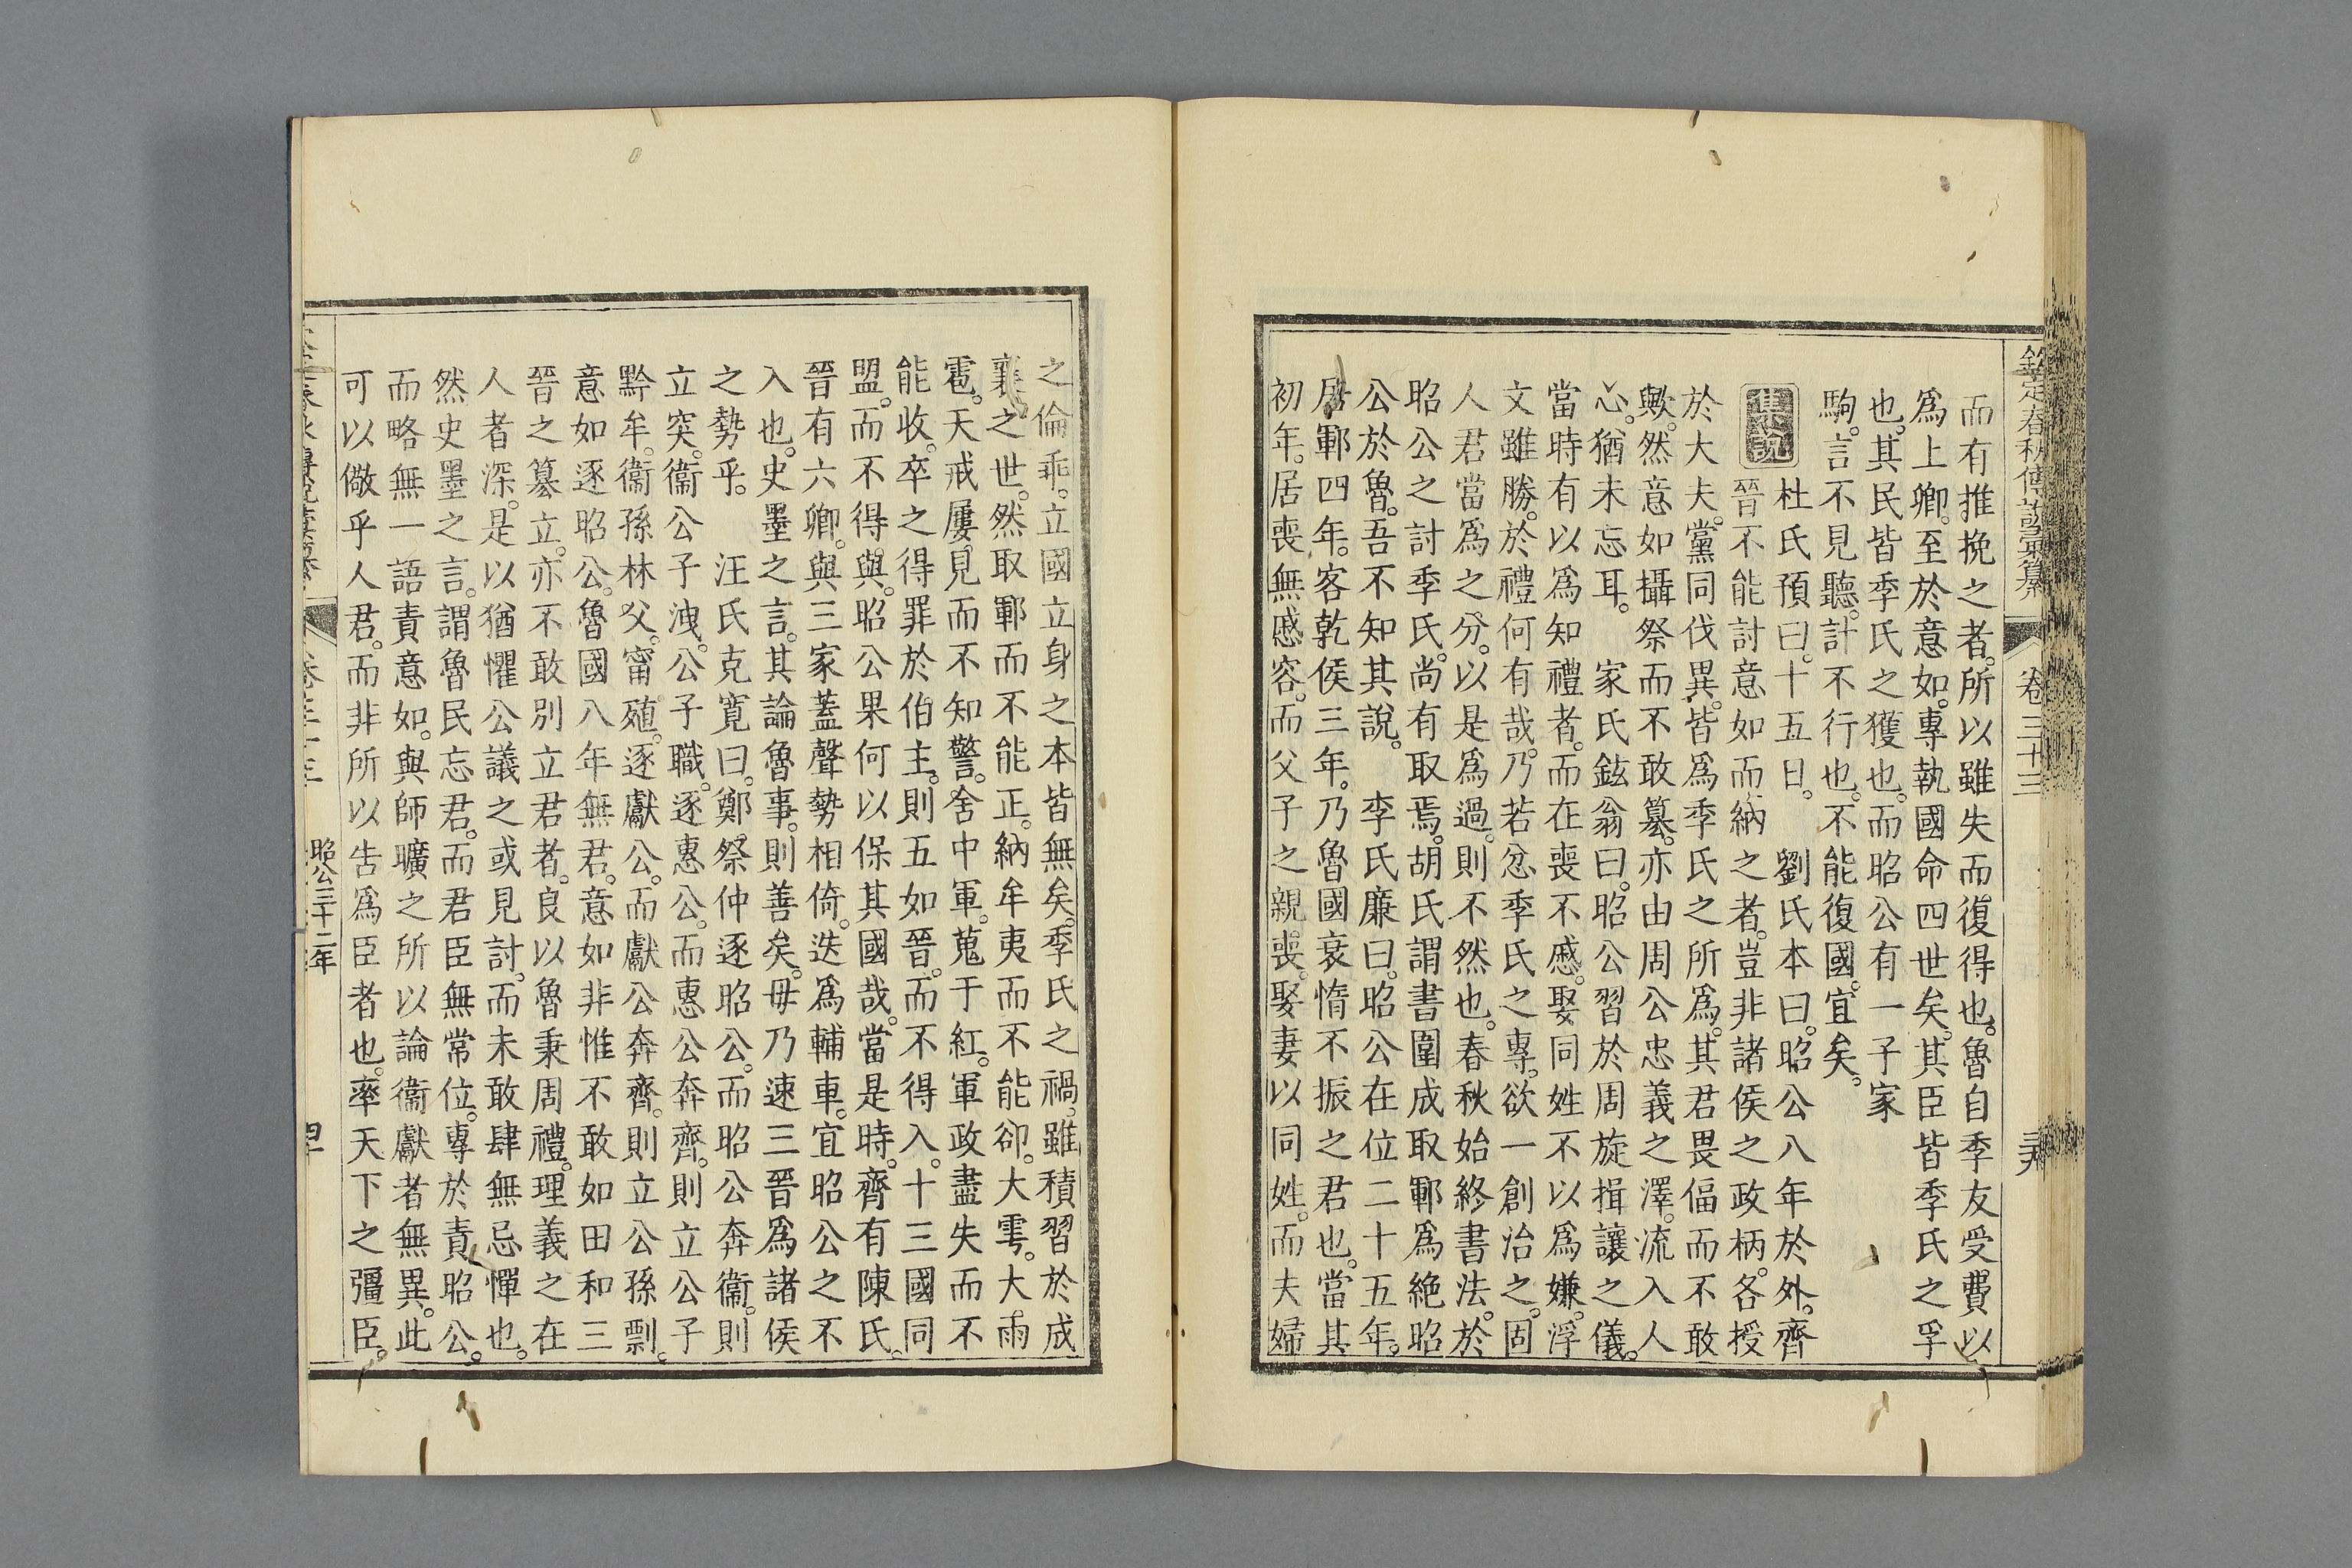 欽定春秋傳說彙纂 卷三十三
而有推挽之者。所以雖失而復得也。魯自季友受費以
爲上卿。至於意如。專執國命四世矣。其臣皆季氏之孚
也。其民皆季氏之獲也。而昭公有一子家
駒。言不見聽。計不行也。不能復國。宜矣。
集說 杜氏預曰。十五日。 劉氏本曰。昭公八年於外。齊
晉不能討意如而納之者。豈非諸侯之政柄。各授
於大夫。黨同伐異。皆爲季氏之所爲。其君畏偪而不敢
歟。然意如攝祭而不敢簒。亦由周公忠義之澤。流入人
心。猶未忘耳。 家氏鉉翁曰。昭公習於周旋揖讓之儀。
當時有以爲知禮者。而在喪不慼。娶同姓不以爲嫌。浮
文雖勝。於禮何有哉。乃若忿季氏之專。欲一創治之。固
人君當爲之分。以是爲過。則不然也。春秋始終書法。於
昭公之討季氏。尚有取焉。胡氏謂書圍成取鄆爲絶昭
公於魯。吾不知其說。 李氏廉曰。昭公在位二十五年。
居鄆四年。客乾侯三年。乃魯國衰惰不振之君也。當其
初年。居喪無慼容。而父子之親喪。娶妻以同姓。而夫婦
之倫乖。立國立身之本皆無矣。季氏之禍。雖積習於成
襄之世。然取鄆而不能正。納牟夷而不能卻。大雩。大雨
雹。天戒屢見而不知警。舍中軍。蒐于紅。軍政盡失而不
能收。卒之得罪於伯主。則五如晉。而不得入。十三國同
盟。而不得與。昭公果何以保其國哉。當是時。齊有陳氏。
晉有六卿。與三家蓋聲勢相倚。迭爲輔車。宜昭公之不
入也。史墨之言。其論魯事。則善矣。毋乃速三晉爲諸侯
之勢乎。 汪氏克寬曰。鄭祭仲逐昭公。而昭公奔衞。則
立突。衞公子洩。公子職。逐惠公。而惠公奔齊。則立公子
黔牟。衞孫林父。甯殖。逐獻公。而獻公奔齊。則立公孫剽。
意如逐昭公。魯國八年無君。意如非惟不敢如田和三
晉之簒立。亦不敢別立君者。良以魯秉周禮。理義之在
人者深。是以猶懼公議之或見討。而未敢肆無忌憚也。
然史墨之言。謂魯民忘君。而君臣無常位。專於責昭公。
而略無一語責意如。與師曠之所以論衞獻者無異。此
可以儆乎人君。而非所以告爲臣者也。率天下之彊臣。
昭公三十二年